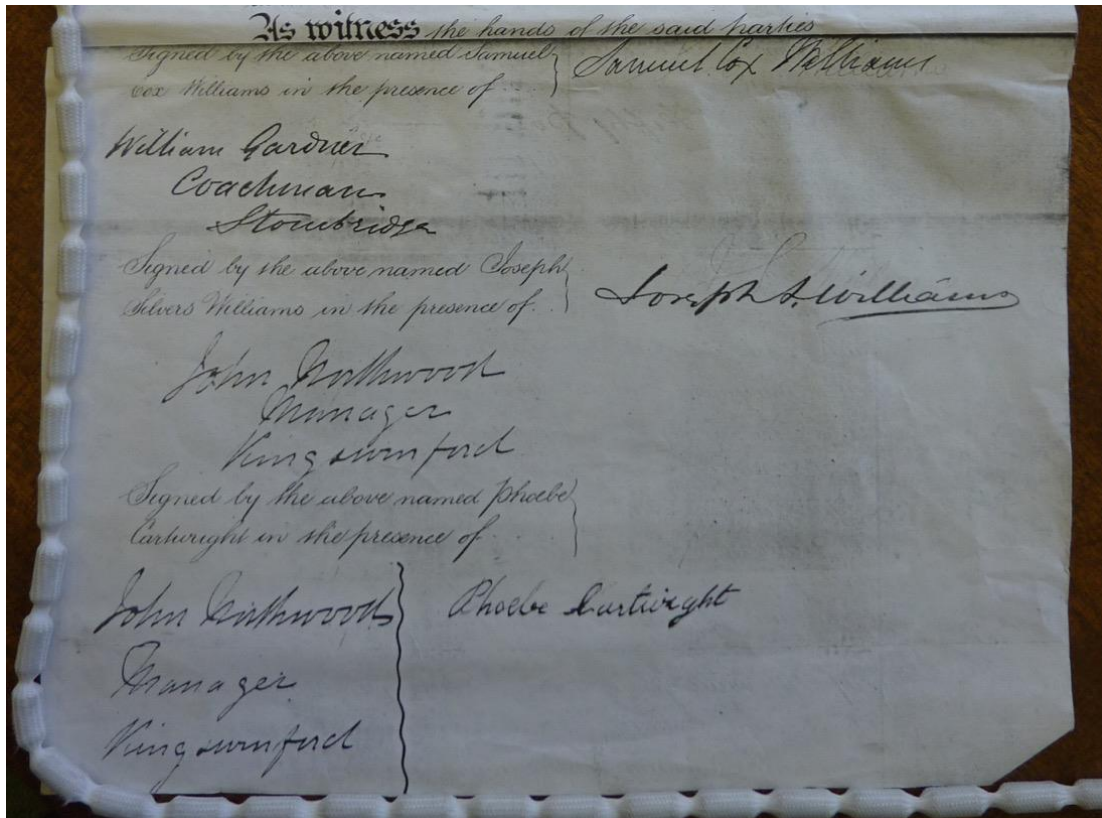 As witness the hands of the said parties
Signed by the above named Samuel
Cox Williams in the presence of
Samuel Cox Williams
William Gardner
Coachman
Stourbridge
Signed by the above named Joseph
Silvers Williams in the presence of
Joseph S. Williams
John Northwood
Manager
Kingswinford
Signed by the above named Phoebe
Cartwright in the presence of
John Northwood
Phoebe Cartwright
Manager
Kingswinford